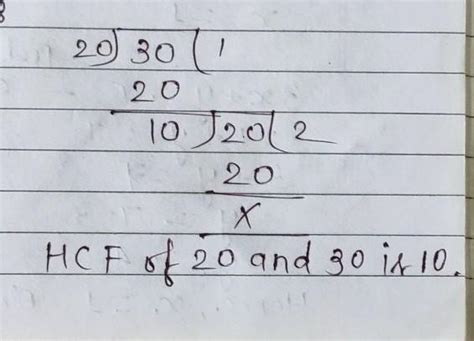 20) 30 ( 1
20
10 ) 20 ( 2
20
x
HCF of 20 and 30 is 10.